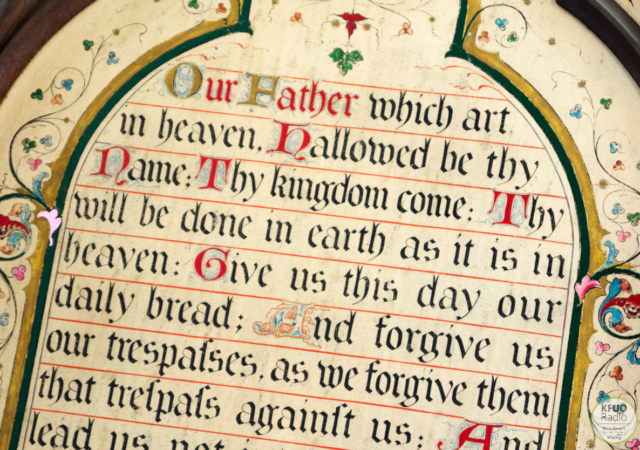 Our Father which art
in heaven, Hallowed be thy
Name; Thy kingdom come; Thy
will be done in earth as it is in
heaven: Give us this day our
daily bread; And forgive us
our trespaſses, as we forgive them
that treſpaſs againſt us; And
lead us not
KFUO
Radio